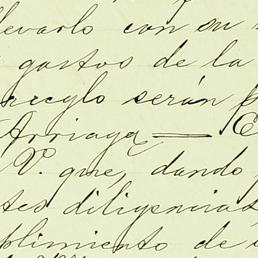 llevarlo con su
gastos de la
arreglo serán p
Arriaga — E
V. que, dando
tes diligencias
plimiento de